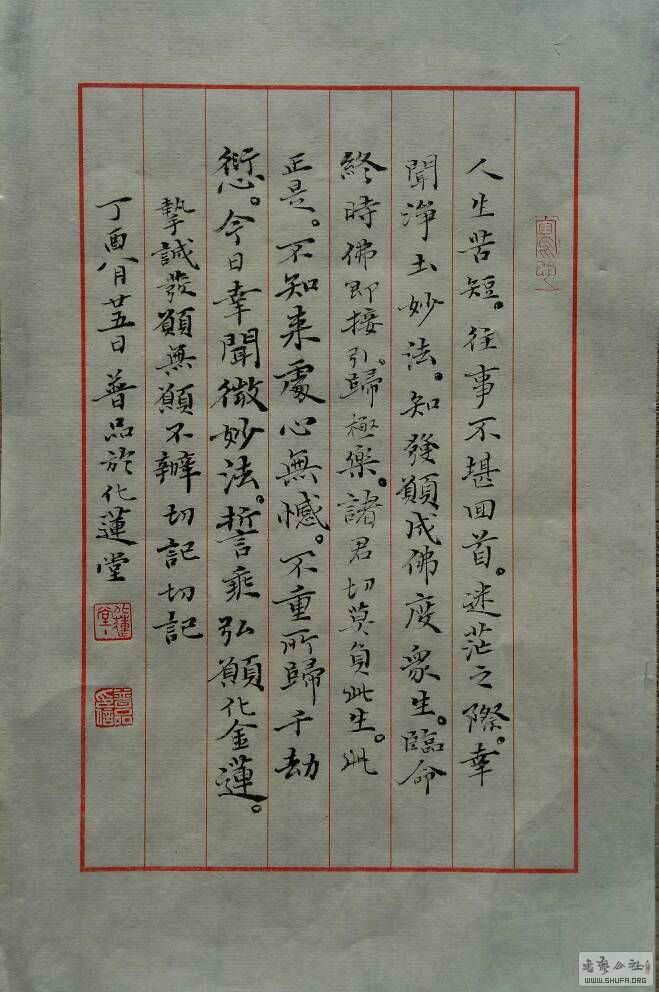 人生苦短。往事不堪回首。迷茫之際。幸
聞淨土妙法。知發願成佛度衆生。臨命
終時佛即接引。歸極樂。諸君切莫負此生。此
正是。不知来處心無憾。不重所歸千劫
愆。今日幸聞微妙法。誓乘弘願化金蓮。
摯誠發願無願不辦切記切記
丁酉八月廿五日 普品於化蓮堂
化蓮堂
普品
WWW.SHUFA.ORG